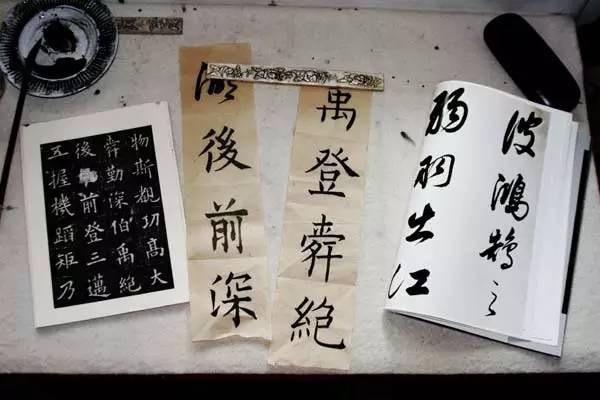 物斯覩功高大
舜勤深伯禹絕
後前登三邁
五握機蹈矩乃
登舜絕
後前深
波鴻鵠之
弱羽出江